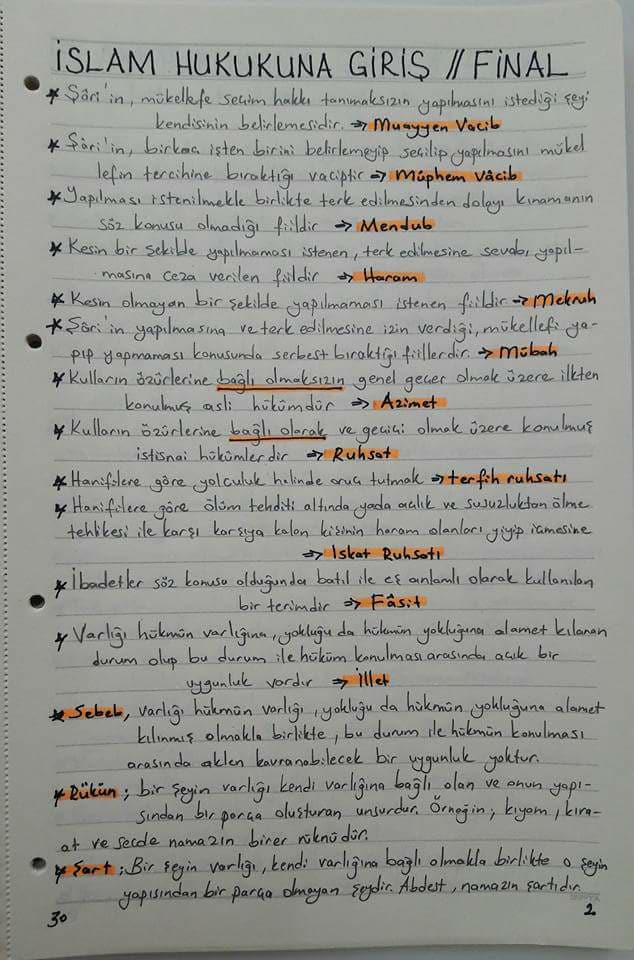 İSLAM HUKUKUNA GİRİŞ // FİNAL
* Şâri'in, mükellefe seçim hakkı tanımaksızın yapılmasını istediği şeyi
kendisinin belirlemesidir. → Muayyen Vâcib
* Şâri'in, birkaç işten birini belirlemeyip seçilip yapılmasını mükel
lefin tercihine bıraktığı vaciptir → Müphem Vâcib
* Yapılması istenilmekle birlikte terk edilmesinden dolayı kınamanın
söz konusu olmadığı fiildir → Mendub
* Kesin bir şekilde yapılmaması istenen, terk edilmesine sevabı, yapıl-
masına ceza verilen fiildir → Haram
* Kesin olmayan bir şekilde yapılmaması istenen fiildir → Mekruh
* Şâri'in yapılmasına ve terk edilmesine izin verdiği, mükellefi ya-
pıp yapmaması konusunda serbest bıraktığı fiillerdir. → Mübah
* Kulların özürlerine bağlı olmaksızın genel geçer olmak üzere ilkten
konulmuş asli hükümdür → Azimet
* Kulların özürlerine bağlı olarak ve geçici olmak üzere konulmuş
istisnai hükümlerdir → Ruhsat
* Hanifilere göre yolculuk halinde oruç tutmak → terfih ruhsatı
* Hanifilere göre ölüm tehditi altında yada açlık ve susuzluktan ölme
tehlikesi ile karşı karşıya kalan kişinin haram olanları yiyip içmesine
→ Iskat Ruhsatı
* İbadetler söz konusu olduğunda batıl ile eş anlamlı olarak kullanılan
bir terimdir → Fâsit
* Varlığı hükmün varlığına, yokluğu da hükmün yokluğuna alamet kılınan
durum olup bu durum ile hüküm konulması arasında açık bir
uygunluk vardır → İllet
* Sebeb, varlığı hükmün varlığı, yokluğu da hükmün yokluğuna alamet
kılınmış olmakla birlikte, bu durum ile hükmün konulması
arasında aklen kavranabilecek bir uygunluk yoktur.
* Rükün; bir şeyin varlığı kendi varlığına bağlı olan ve onun yapı-
sından bir parça oluşturan unsurdur. Örneğin; kıyam, kıra-
at ve secde namazın birer rüknüdür.
* Şart; Bir şeyin varlığı, kendi varlığına bağlı olmakla birlikte o şeyin
yapısından bir parça olmayan şeydir. Abdest, namazın şartıdır.
30 2